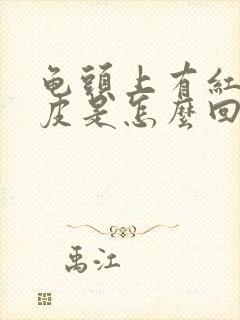 龟頭上有紅
皮是怎麼回
禹江